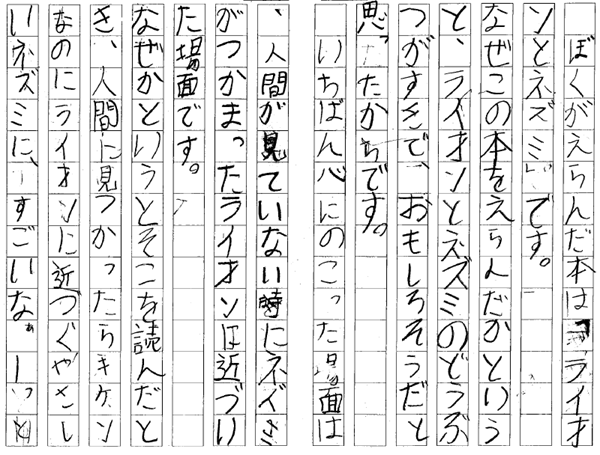 ぼくがえらんだ本は「ライオ
ンとネズミ」です。
なぜこの本をえらんだかという
と、ライオンとネズミのどうぶ
つがすきで、おもしろそうだと
思ったからです。
いちばん心にのこった場面は
、人間が見ていない時にネズミ
がつかまったライオンは近づい
た場面です。
なぜかというとそこを読んだと
き、人間に見つかったらキケン
なのにライオンに近づくやさし
いネズミに、すごいなぁ